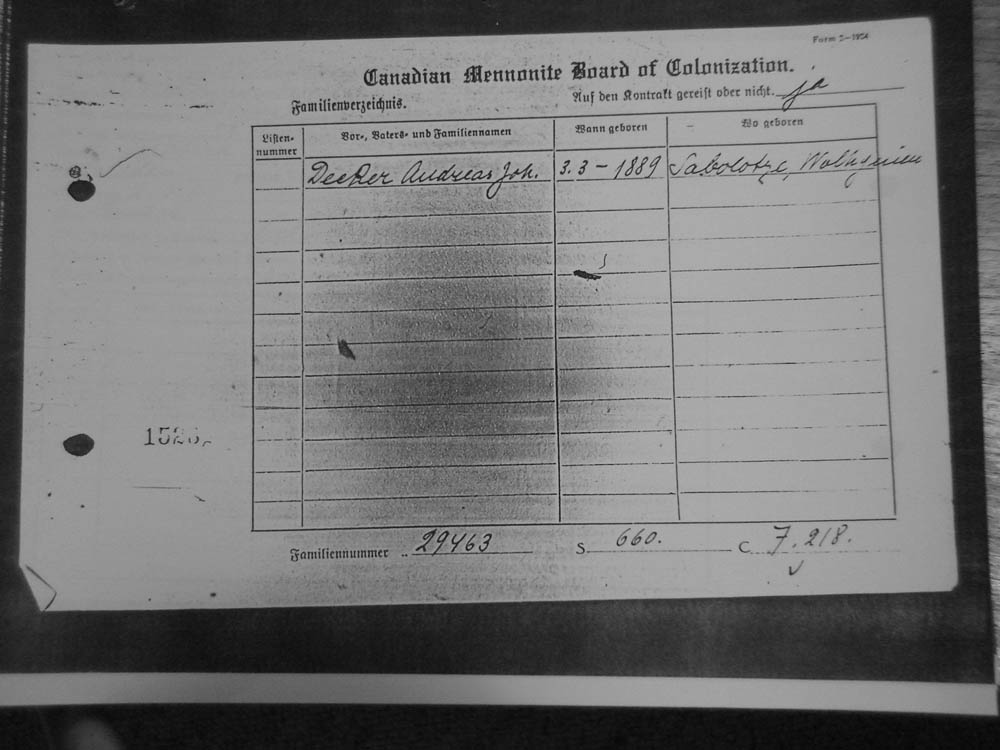 Form 2-1924
Canadian Mennonite Board of Colonization.
Familienverzeichnis. Auf den Kontrakt gereist oder nicht. ja
Listen-nummer Vor-, Vaters- und Familiennamen Wann geboren Wo geboren
Decker Andreas Joh. 3.3-1889 Sabolotze, Wolhynien
Familiennummer 29463 S. 660. C. 7.218.